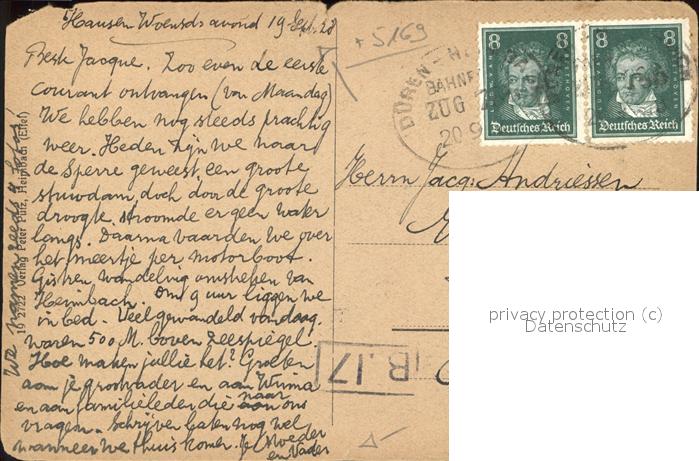 Hausen Woensd. avond 19 Sept. 28
Beste Jacque. Zoo even de eerste
courant ontvangen (van Maandag)
We hebben nog steeds prachtig
weer. Heden zijn we naar
de Sperre geweest, een groote
stuwdam, doch door de groote
droogte stroomde er geen water
langs. Daarna vaarden we over
het meertje per motorboot.
Gisteren wandeling omstreken van
Heimbach. Om 9 uur liggen we
in bed. Veel gewandeld vandaag.
waren 500 M. boven zeespiegel.
Hoe maken jullie het? Groeten
aan je grootvader en aan Wima
en aan familieleden die naar ons
vragen. Schrijver laten nog wel
wanneer we thuis komen. Je Moeder
en Vader
We namen reeds 4 foto's
Verlag Peter Pütz, Heimbach (Eifel)
+5169
DÜREN-H
BAHNP
ZUG
20 9
8
8
LUDWIG VAN BEETHOVEN
Deutsches Reich
Deutsches Reich
Herrn Jacq: Andriessen
B.17
privacy protection (c)
Datenschutz